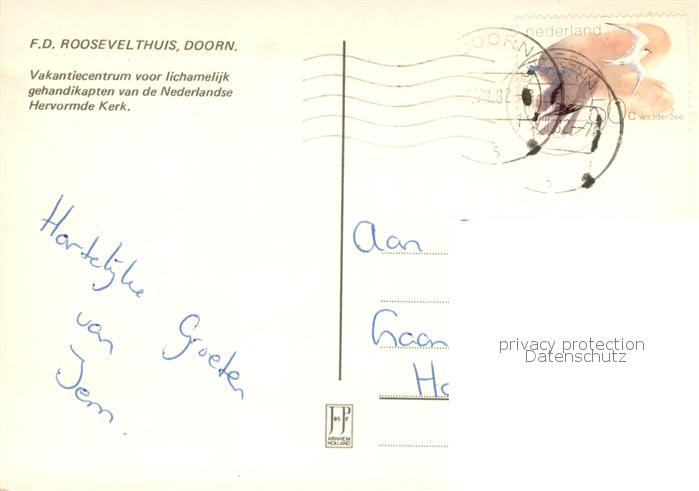 F.D. ROOSEVELTHUIS, DOORN.
Vakantiecentrum voor lichamelijk
gehandikapten van de Nederlandse
Hervormde Kerk.
DOORN
nederland
c waddenzee
Hartelijke Groeten
van
Jem.
Aan
privacy protection
Datenschutz
JosPé
ARNHEM
HOLLAND